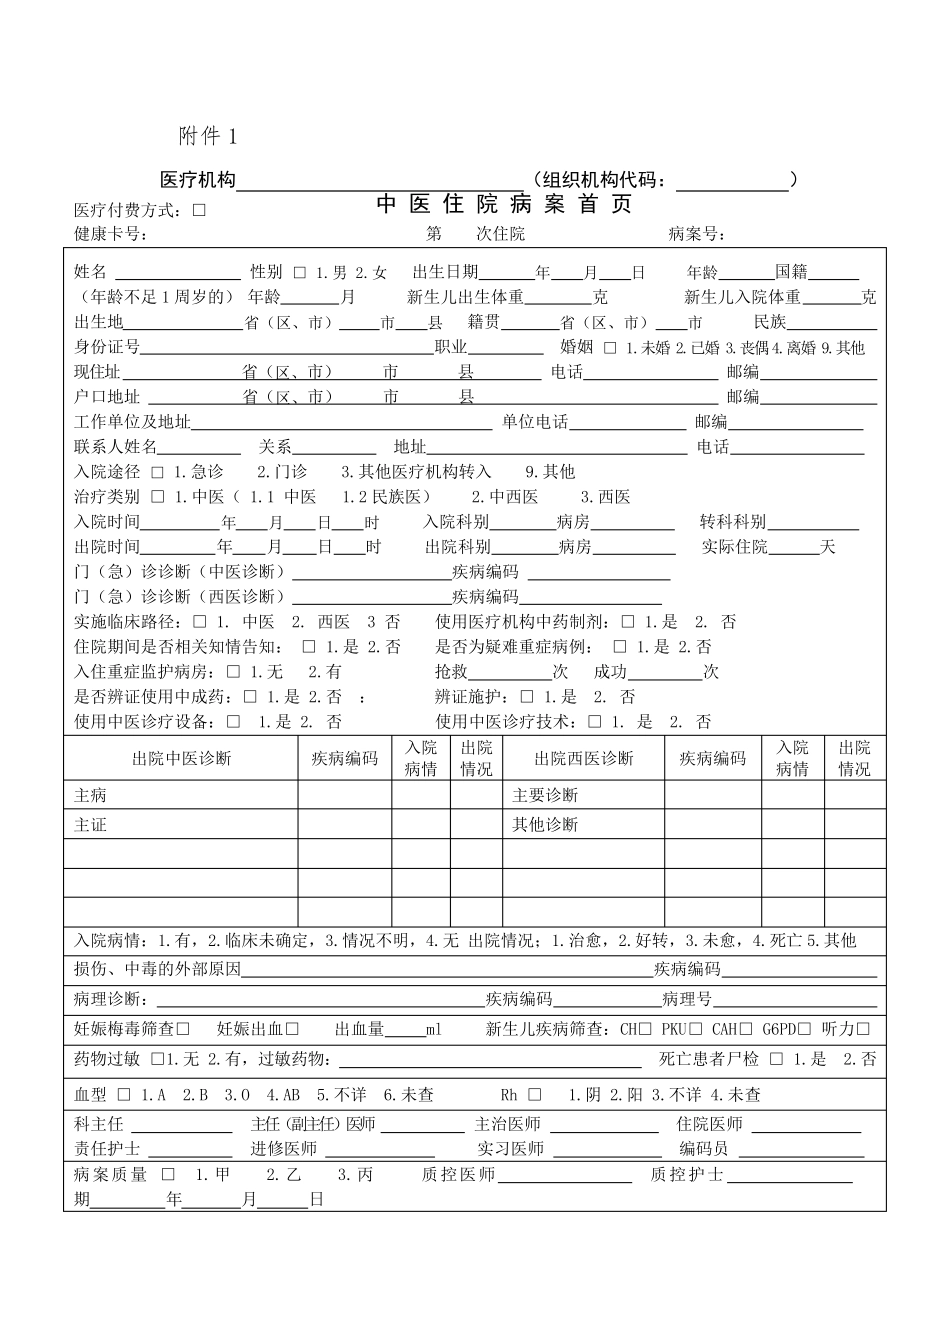 附件1
医疗机构______（组织机构代码：______）
中 医 住 院 病 案 首 页
医疗付费方式：□
健康卡号： 第 次住院 病案号：
姓名______ 性别 □ 1.男 2.女 出生日期______年____月____日 年龄______国籍______
（年龄不足1周岁的） 年龄______月 新生儿出生体重______克 新生儿入院体重______克
出生地______省（区、市）____市____县 籍贯______省（区、市）____市 民族______
身份证号______职业______ 婚姻 □ 1.未婚 2.已婚 3.丧偶4.离婚 9.其他
现住址______省（区、市）____市____县______ 电话______ 邮编______
户口地址______省（区、市）____市____县______ 邮编______
工作单位及地址______ 单位电话______ 邮编______
联系人姓名______ 关系______ 地址______ 电话______
入院途径 □ 1.急诊 2.门诊 3.其他医疗机构转入 9.其他
治疗类别 □ 1.中医（ 1.1 中医 1.2民族医） 2.中西医 3.西医
入院时间______年____月____日____时 入院科别______病房______ 转科科别______
出院时间______年____月____日____时 出院科别______病房______ 实际住院______天
门（急）诊诊断（中医诊断）______疾病编码______
门（急）诊诊断（西医诊断）______疾病编码______
实施临床路径：□ 1. 中医 2. 西医 3 否 使用医疗机构中药制剂：□ 1.是 2. 否
住院期间是否相关知情告知： □ 1.是 2.否 是否为疑难重症病例： □ 1.是 2.否
入住重症监护病房：□ 1.无 2.有 抢救______次 成功______次
是否辨证使用中成药：□ 1.是 2.否 ： 辨证施护：□ 1.是 2. 否
使用中医诊疗设备：□ 1.是 2. 否 使用中医诊疗技术：□ 1. 是 2. 否
出院中医诊断 疾病编码 入院病情 出院情况 出院西医诊断 疾病编码 入院病情 出院情况
主病 主要诊断
主证 其他诊断
入院病情：1.有，2.临床未确定，3.情况不明，4.无 出院情况；1.治愈，2.好转，3.未愈，4.死亡5.其他
损伤、中毒的外部原因______疾病编码______
病理诊断：______疾病编码______病理号______
妊娠梅毒筛查□ 妊娠出血□ 出血量____ml 新生儿疾病筛查：CH□ PKU□ CAH□ G6PD□ 听力□
药物过敏 □1.无 2.有，过敏药物：______ 死亡患者尸检 □ 1.是 2.否
血型 □ 1.A 2.B 3.O 4.AB 5.不详 6.未查 Rh □ 1.阴 2.阳 3.不详 4.未查
科主任______ 主任（副主任）医师______ 主治医师______ 住院医师______
责任护士______ 进修医师______ 实习医师______ 编码员______
病案质量 □ 1.甲 2.乙 3.丙 质控医师______ 质控护士______
期______年______月______日